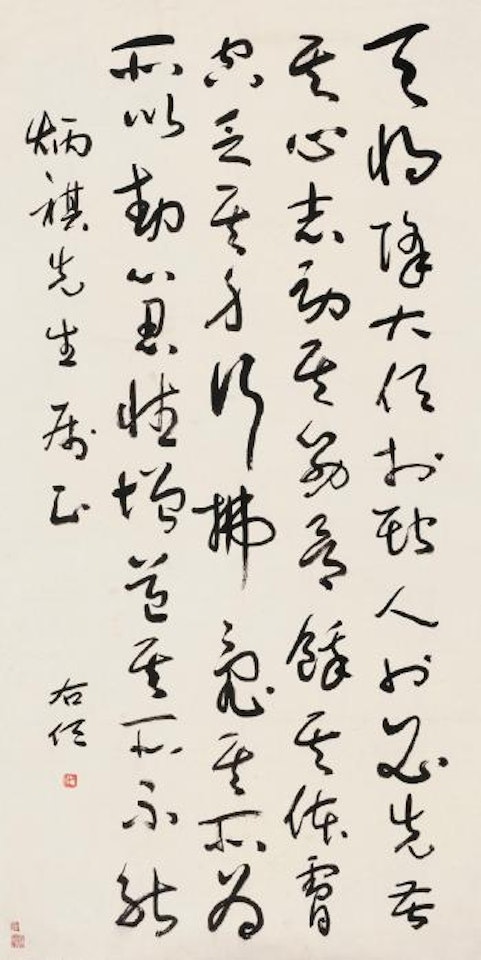 天将降大任於斯人也必先苦
其心志勞其筋骨餓其体膚
空乏其身行拂亂其所為
所以動心忍性增益其所不能
炳祺先生属正
右任